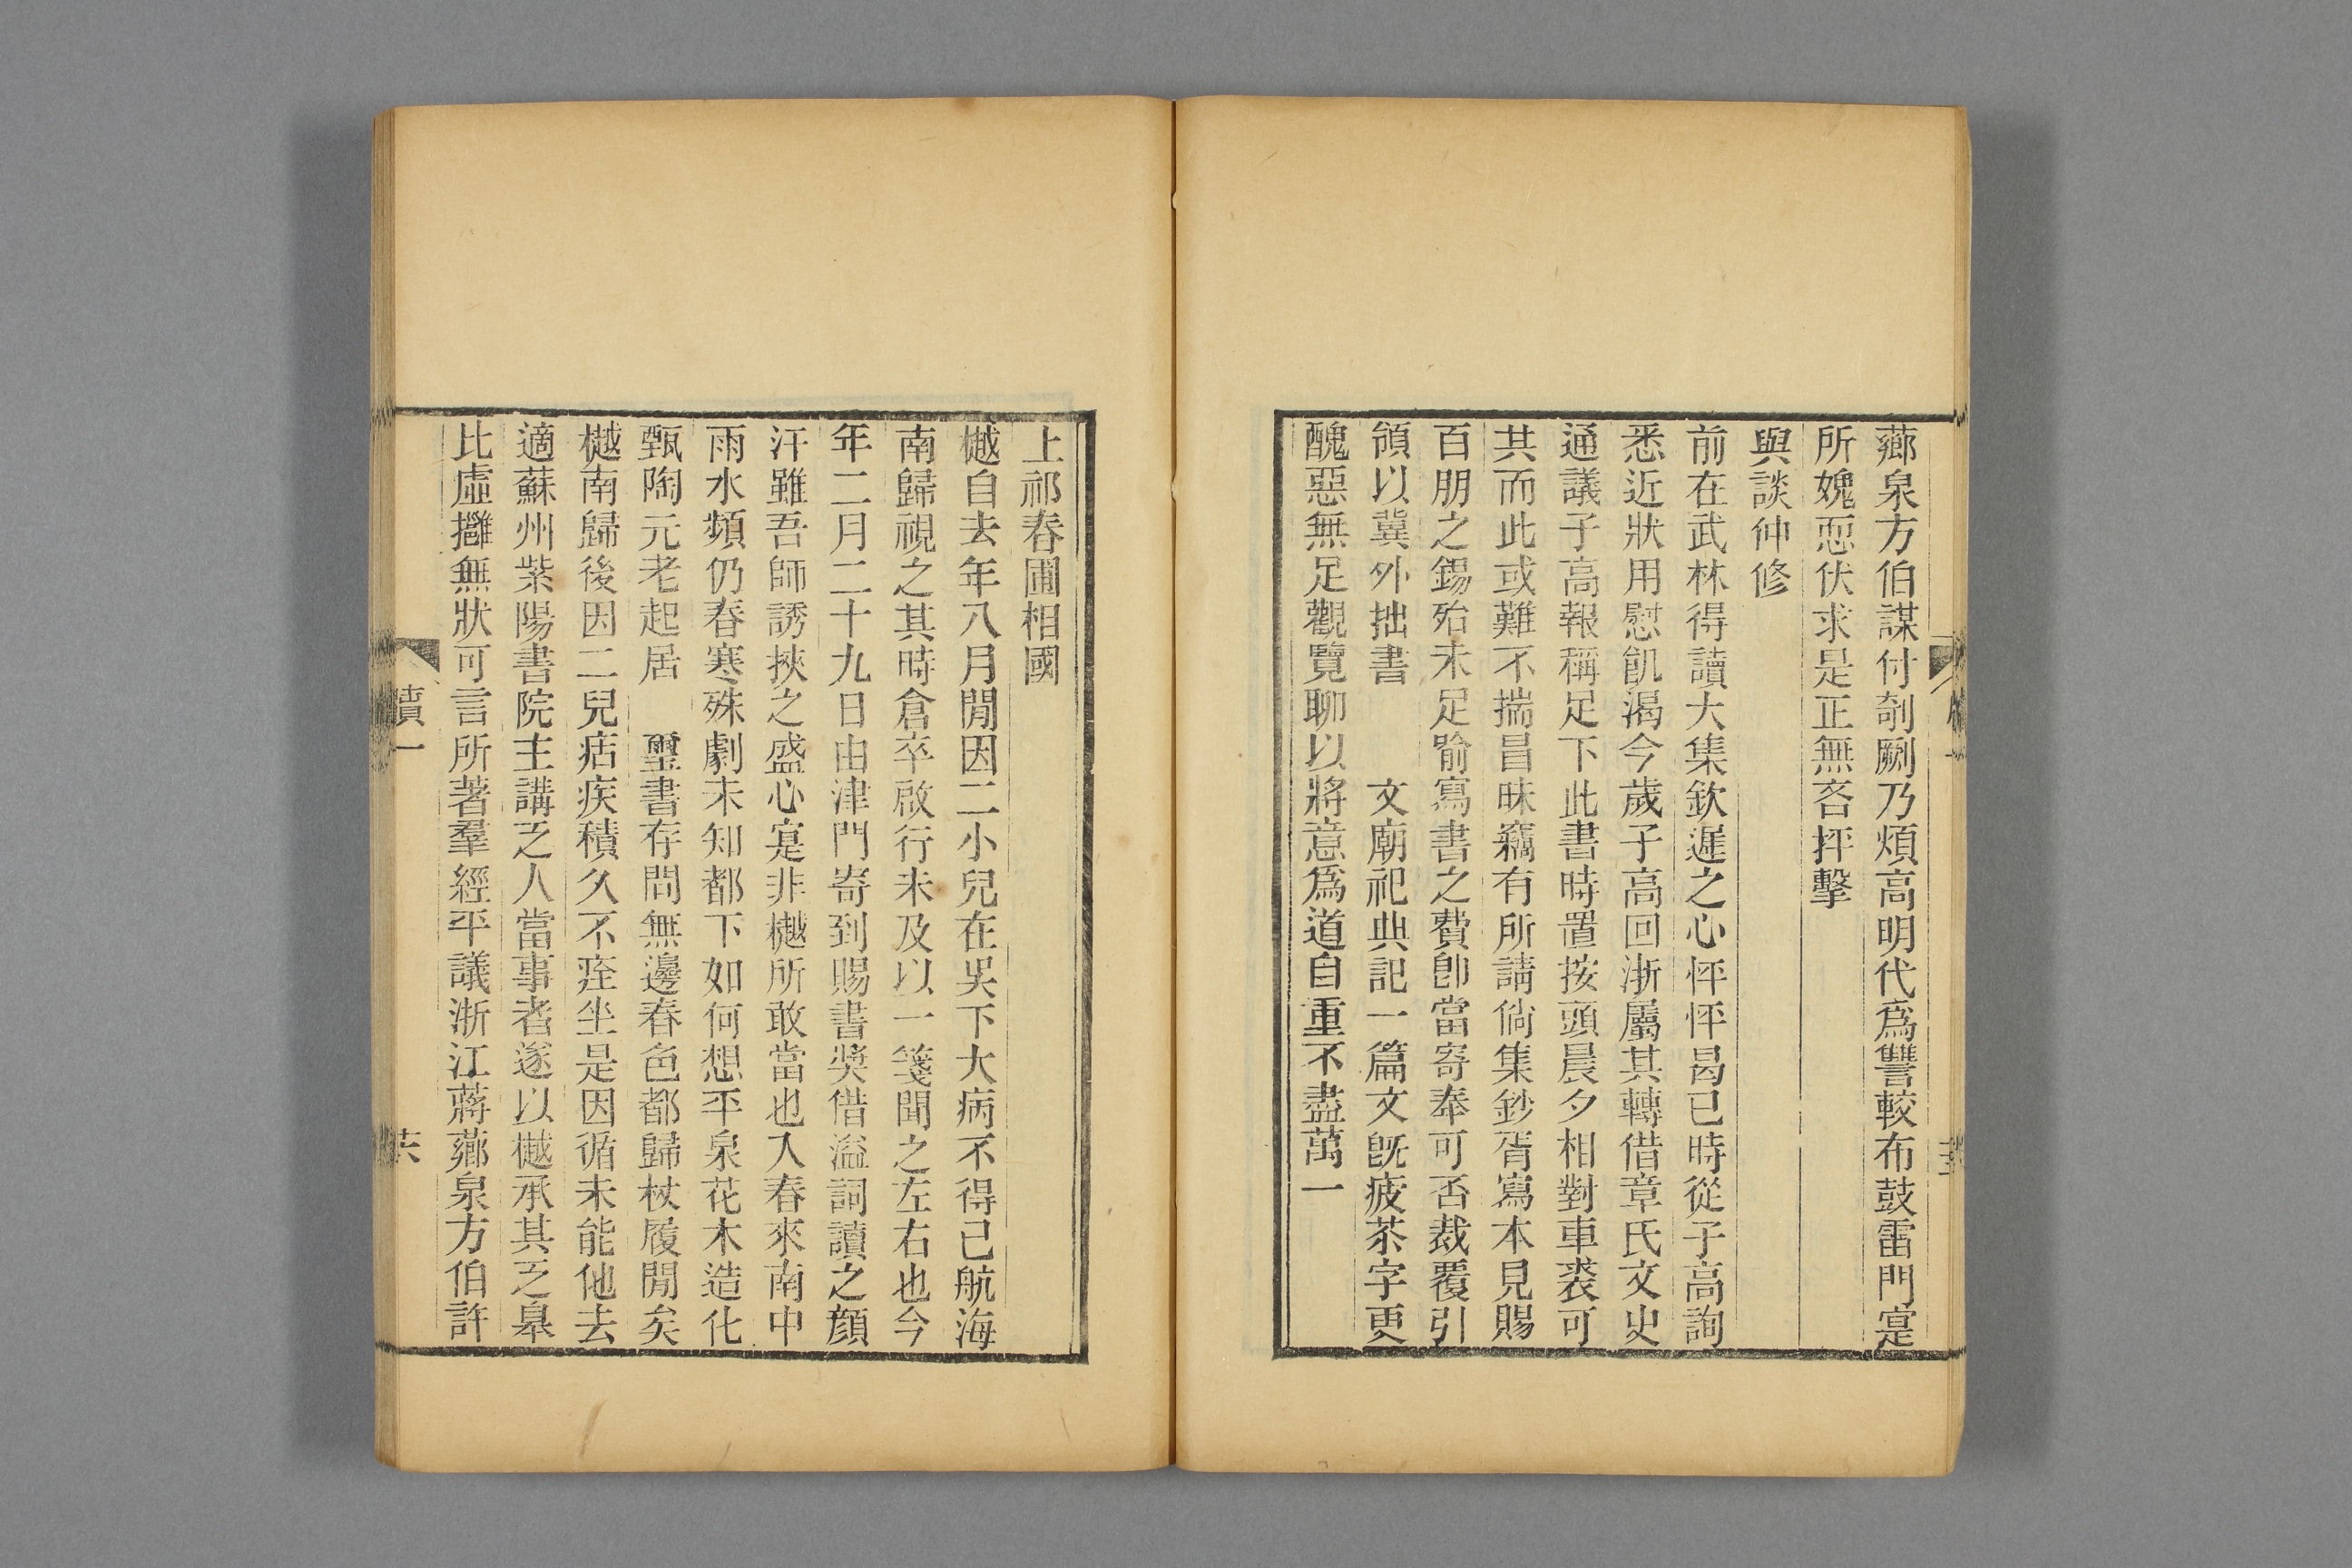 薌泉方伯謀付剞劂乃煩高明代爲讐較布鼓雷門寔
所媿恧伏求是正無吝抨擊
與談仲修
前在武林得讀大集欽遲之心怦怦曷已時從子高詢
悉近狀用慰飢渴今歲子高回浙屬其轉借章氏文史
通議子高報稱足下此書時置按頭晨夕相對車裘可
共而此或難不揣昌昧竊有所請倘集鈔胥寫本見賜
百朋之錫殆未足喻寫書之費卽當寄奉可否裁覆引
領以冀外拙書　文廟祀典記一篇文旣疲苶字更
醜惡無足觀覽聊以將意爲道自重不盡萬一
上祁春圃相國
樾自去年八月閒因二小兒在吳下大病不得已航海
南歸視之其時倉卒啟行未及以一箋聞之左右也今
年二月二十九日由津門寄到賜書獎借溢詞讀之顏
汗雖吾師誘挾之盛心寔非樾所敢當也入春來南中
雨水頻仍春寒殊劇未知都下如何想平泉花木造化
甄陶元老起居　璽書存問無邊春色都歸杖履閒矣
樾南歸後因二兒痁疾積久不痊坐是因循未能他去
適蘇州紫陽書院主講乏人當事者遂以樾承其乏皋
比虛攡無狀可言所著羣經平議浙江蔣薌泉方伯許
牘一
共六